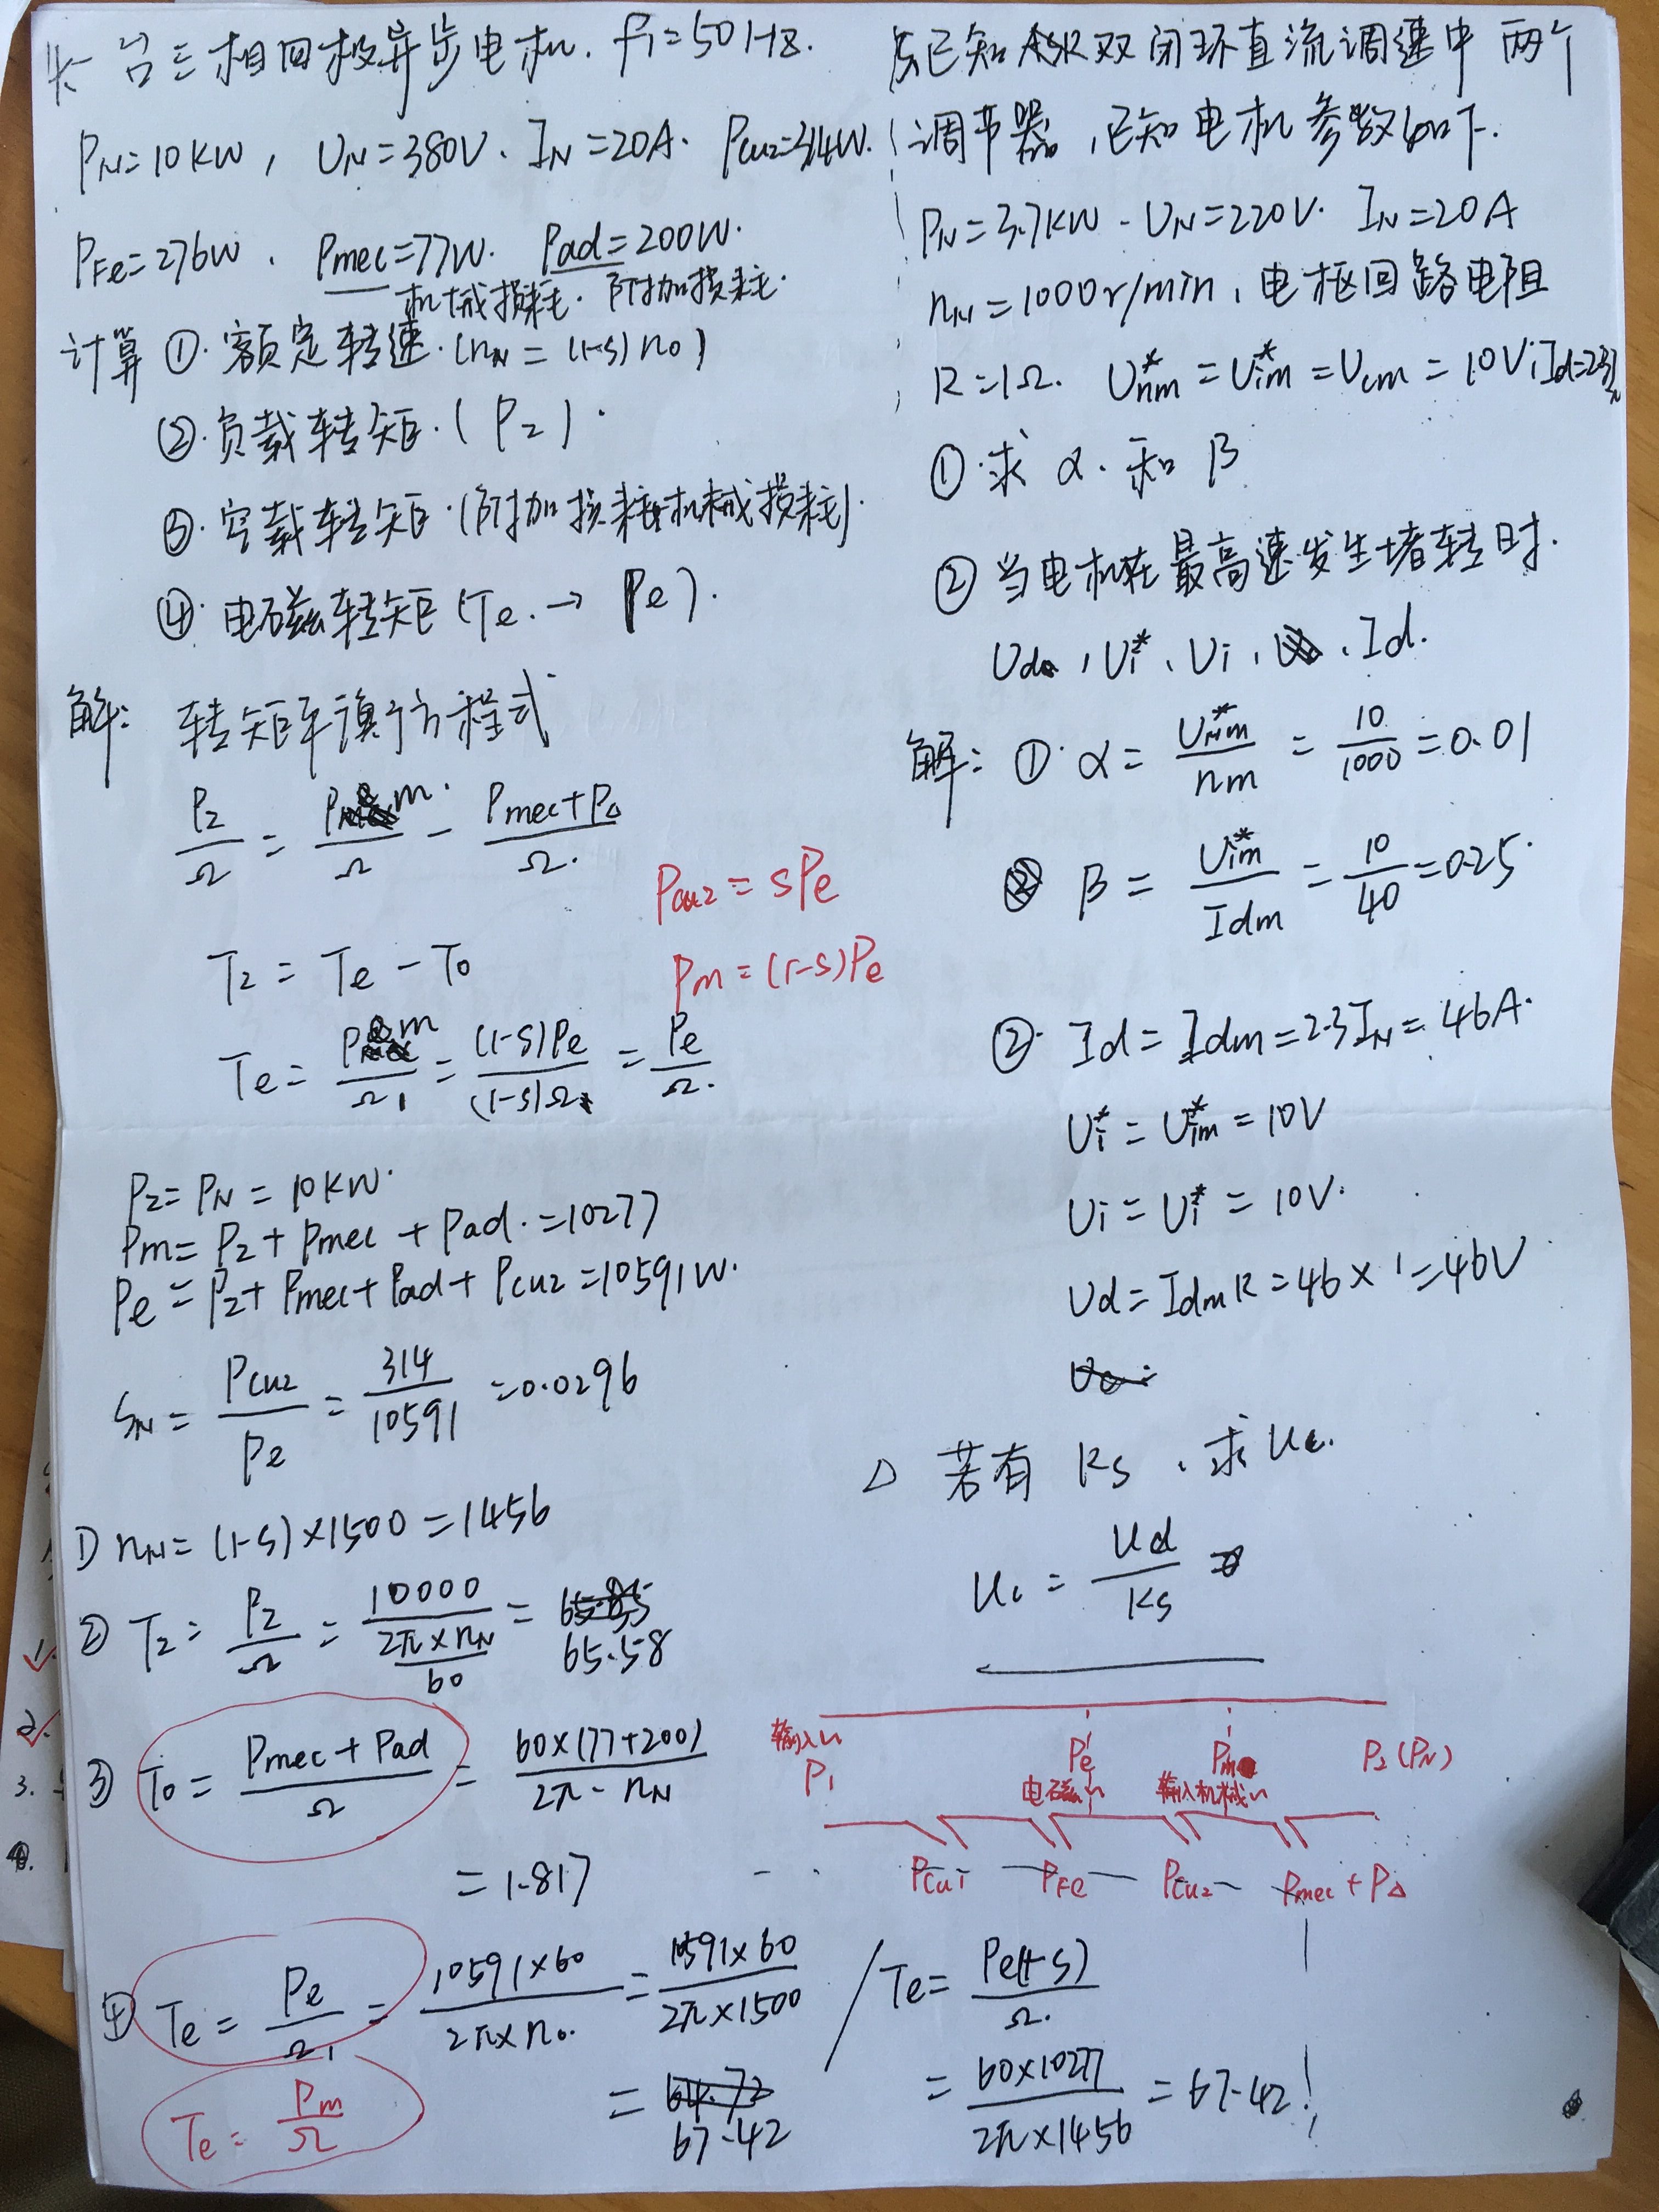 一台三相四极异步电机. f₁=50Hz.
P_N=10KW, U_N=380V、I_N=20A. Pcu2=314W.
P_Fe=276W、Pmec=77W. Pad=200W.
机械损耗. 附加损耗.
计算 ①. 额定转速.(n_N = (1-s) n₀)
②.负载转矩.( P₂ ).
③. 空载转矩.(附加损耗+机械损耗).
④. 电磁转矩(Te. → Pe).
解: 转矩平衡方程式
P₂/Ω = Pm/Ω - (Pmec+P△)/Ω.
Pcu2 = sPe
T₂ = Te - T₀
Pm = (1-s)Pe
Te = Pm/Ω₁ = (1-s)Pe/(1-s)Ω = Pe/Ω.
P₂= P_N = 10KW.
Pm= P₂+ Pmec + Pad. =10277
Pe = P₂+ Pmec+ Pad+ Pcu2 =10591W.
S_N = Pcu2/Pe = 314/10591 =0.0296
① n_N= (1-s)×1500 =1456
② T₂ = P₂/Ω = 10000/(2π×n_N/60) = 65.58
③ T₀ = (Pmec + Pad)/Ω = 60×(77+200)/2π·n_N
= 1.817
④ Te = Pe/Ω₁ = 10591×60/2π×n₀. = 10591×60/2π×1500
= 67.42
Te = Pm/Ω
/ Te = Pe(1-s)/Ω.
= 60×10277/2π×1456 = 67.42
已知ASR双闭环直流调速中 两个
调节器,已知电机参数如下.
P_N=3.7KW - U_N=220V. I_N=20A
n_N=1000r/min, 电枢回路电阻
R=1Ω. U*nm = U*im = Ucm = 10V
①.求 α. 和 β
② 当电机在最高速发生堵转时.
Ud, Ui*、Ui、Id.
解: ① α = U*nm/nm = 10/1000 = 0.01
β = U*im/Idm = 10/40 =0.25.
②. Id = Idm =2.3I_N = 46A.
Ui* = U*im = 10V
Ui = Ui* = 10V.
Ud = IdmR = 46 × 1 = 46V
△ 若有 Ks、求Uc.
Uc = Ud/Ks
输入
P₁
Pe
电磁
Pm
输入机械
P₂ (P_N)
Pcu1 — PFe — Pcu2 — Pmec + P△